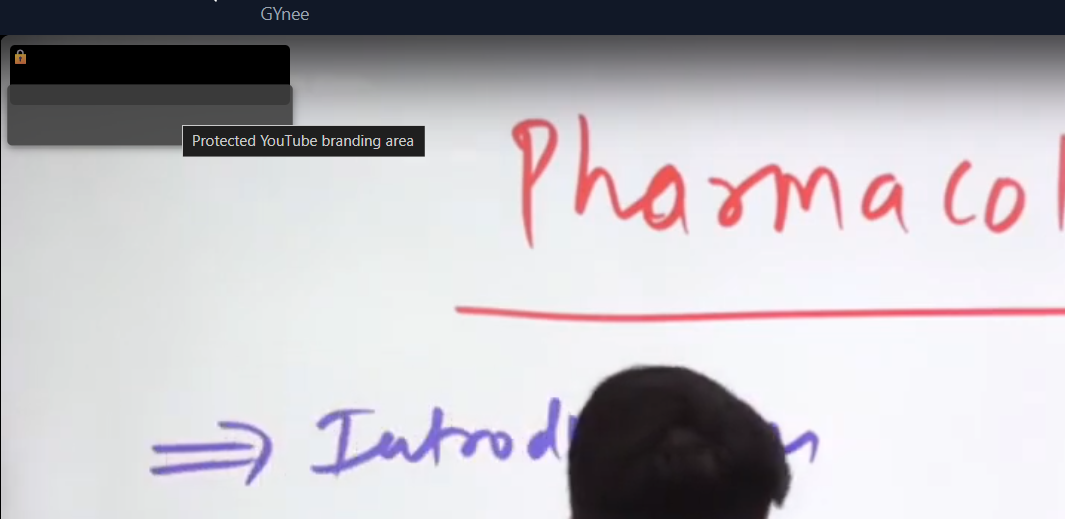 GYnee
Protected YouTube branding area
Pharmacol
⇒ Introd